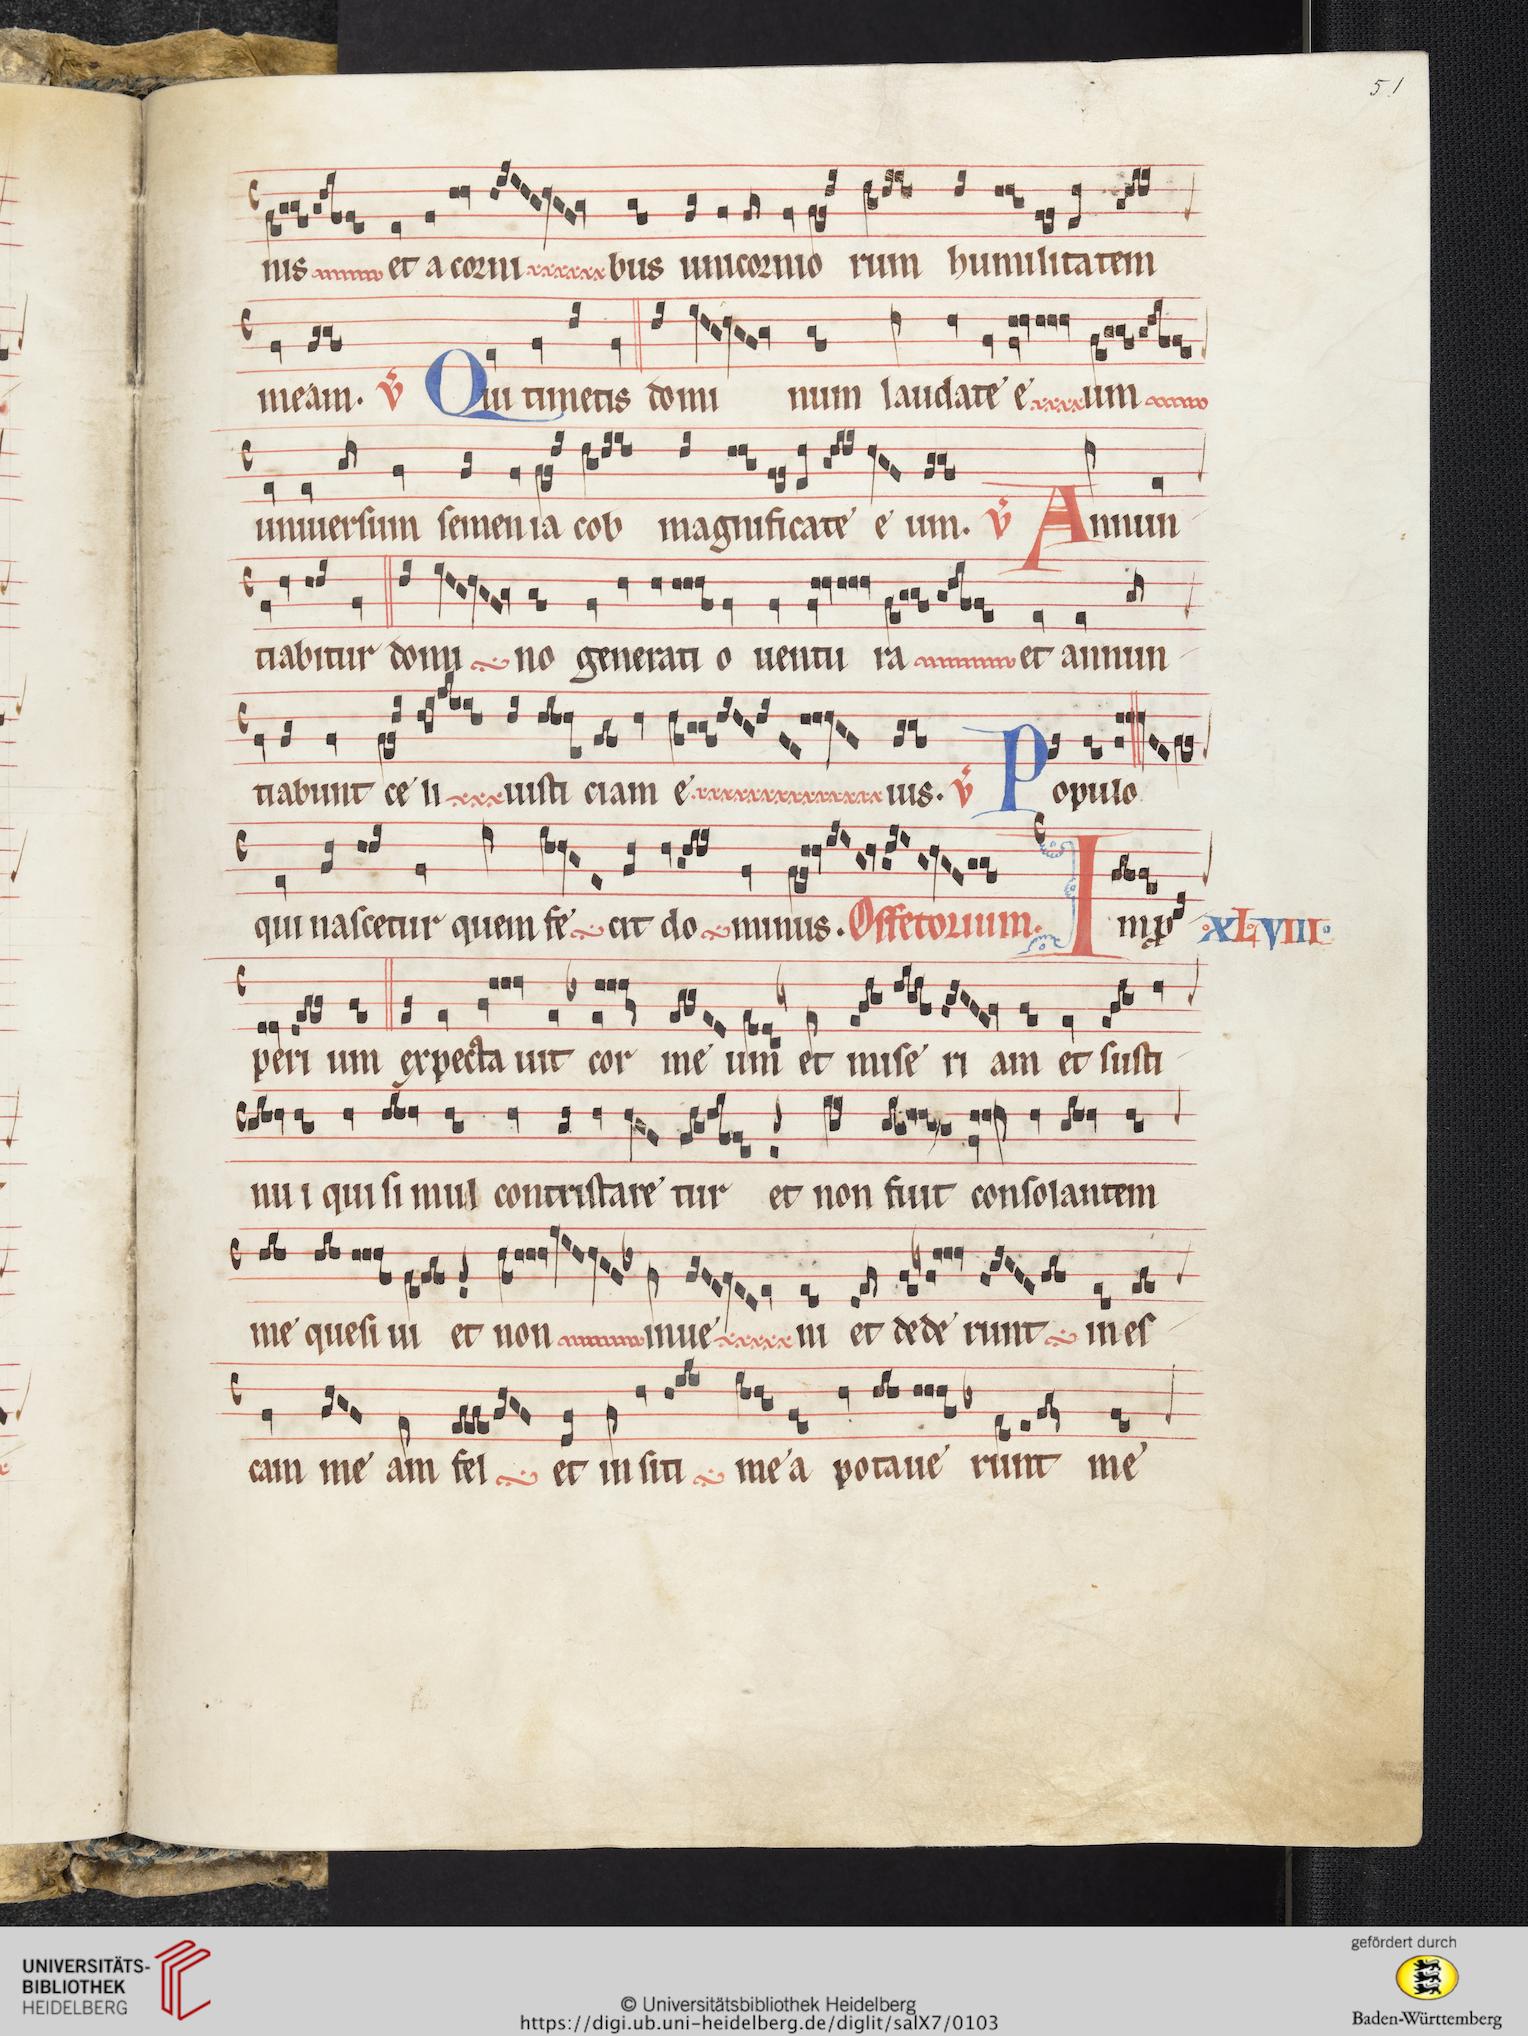 51
nis et a corni bus unicornio rum humilitatem
meam. v̄ Qui timetis domi num laudate e um
universum semen ia cob magnificate e um. v̄ Annun
tiabitur domi no generati o uentu ra et annun
tiabunt ce li iusti ciam e ius. v̄ Populo
qui nascetur quem fe cit do minus. Offetorium. Inꝓ XLVIII
peri um expecta uit cor me um et mise ri am et susti
nu i qui si mul contristare tur et non fuit consolantem
me quesi ui et non inue ni et dede runt in es
cam me am fel et in siti me a potaue runt me
UNIVERSITÄTS-
BIBLIOTHEK
HEIDELBERG
© Universitätsbibliothek Heidelberg
https://digi.ub.uni-heidelberg.de/diglit/salX7/0103
gefördert durch
Baden-Württemberg